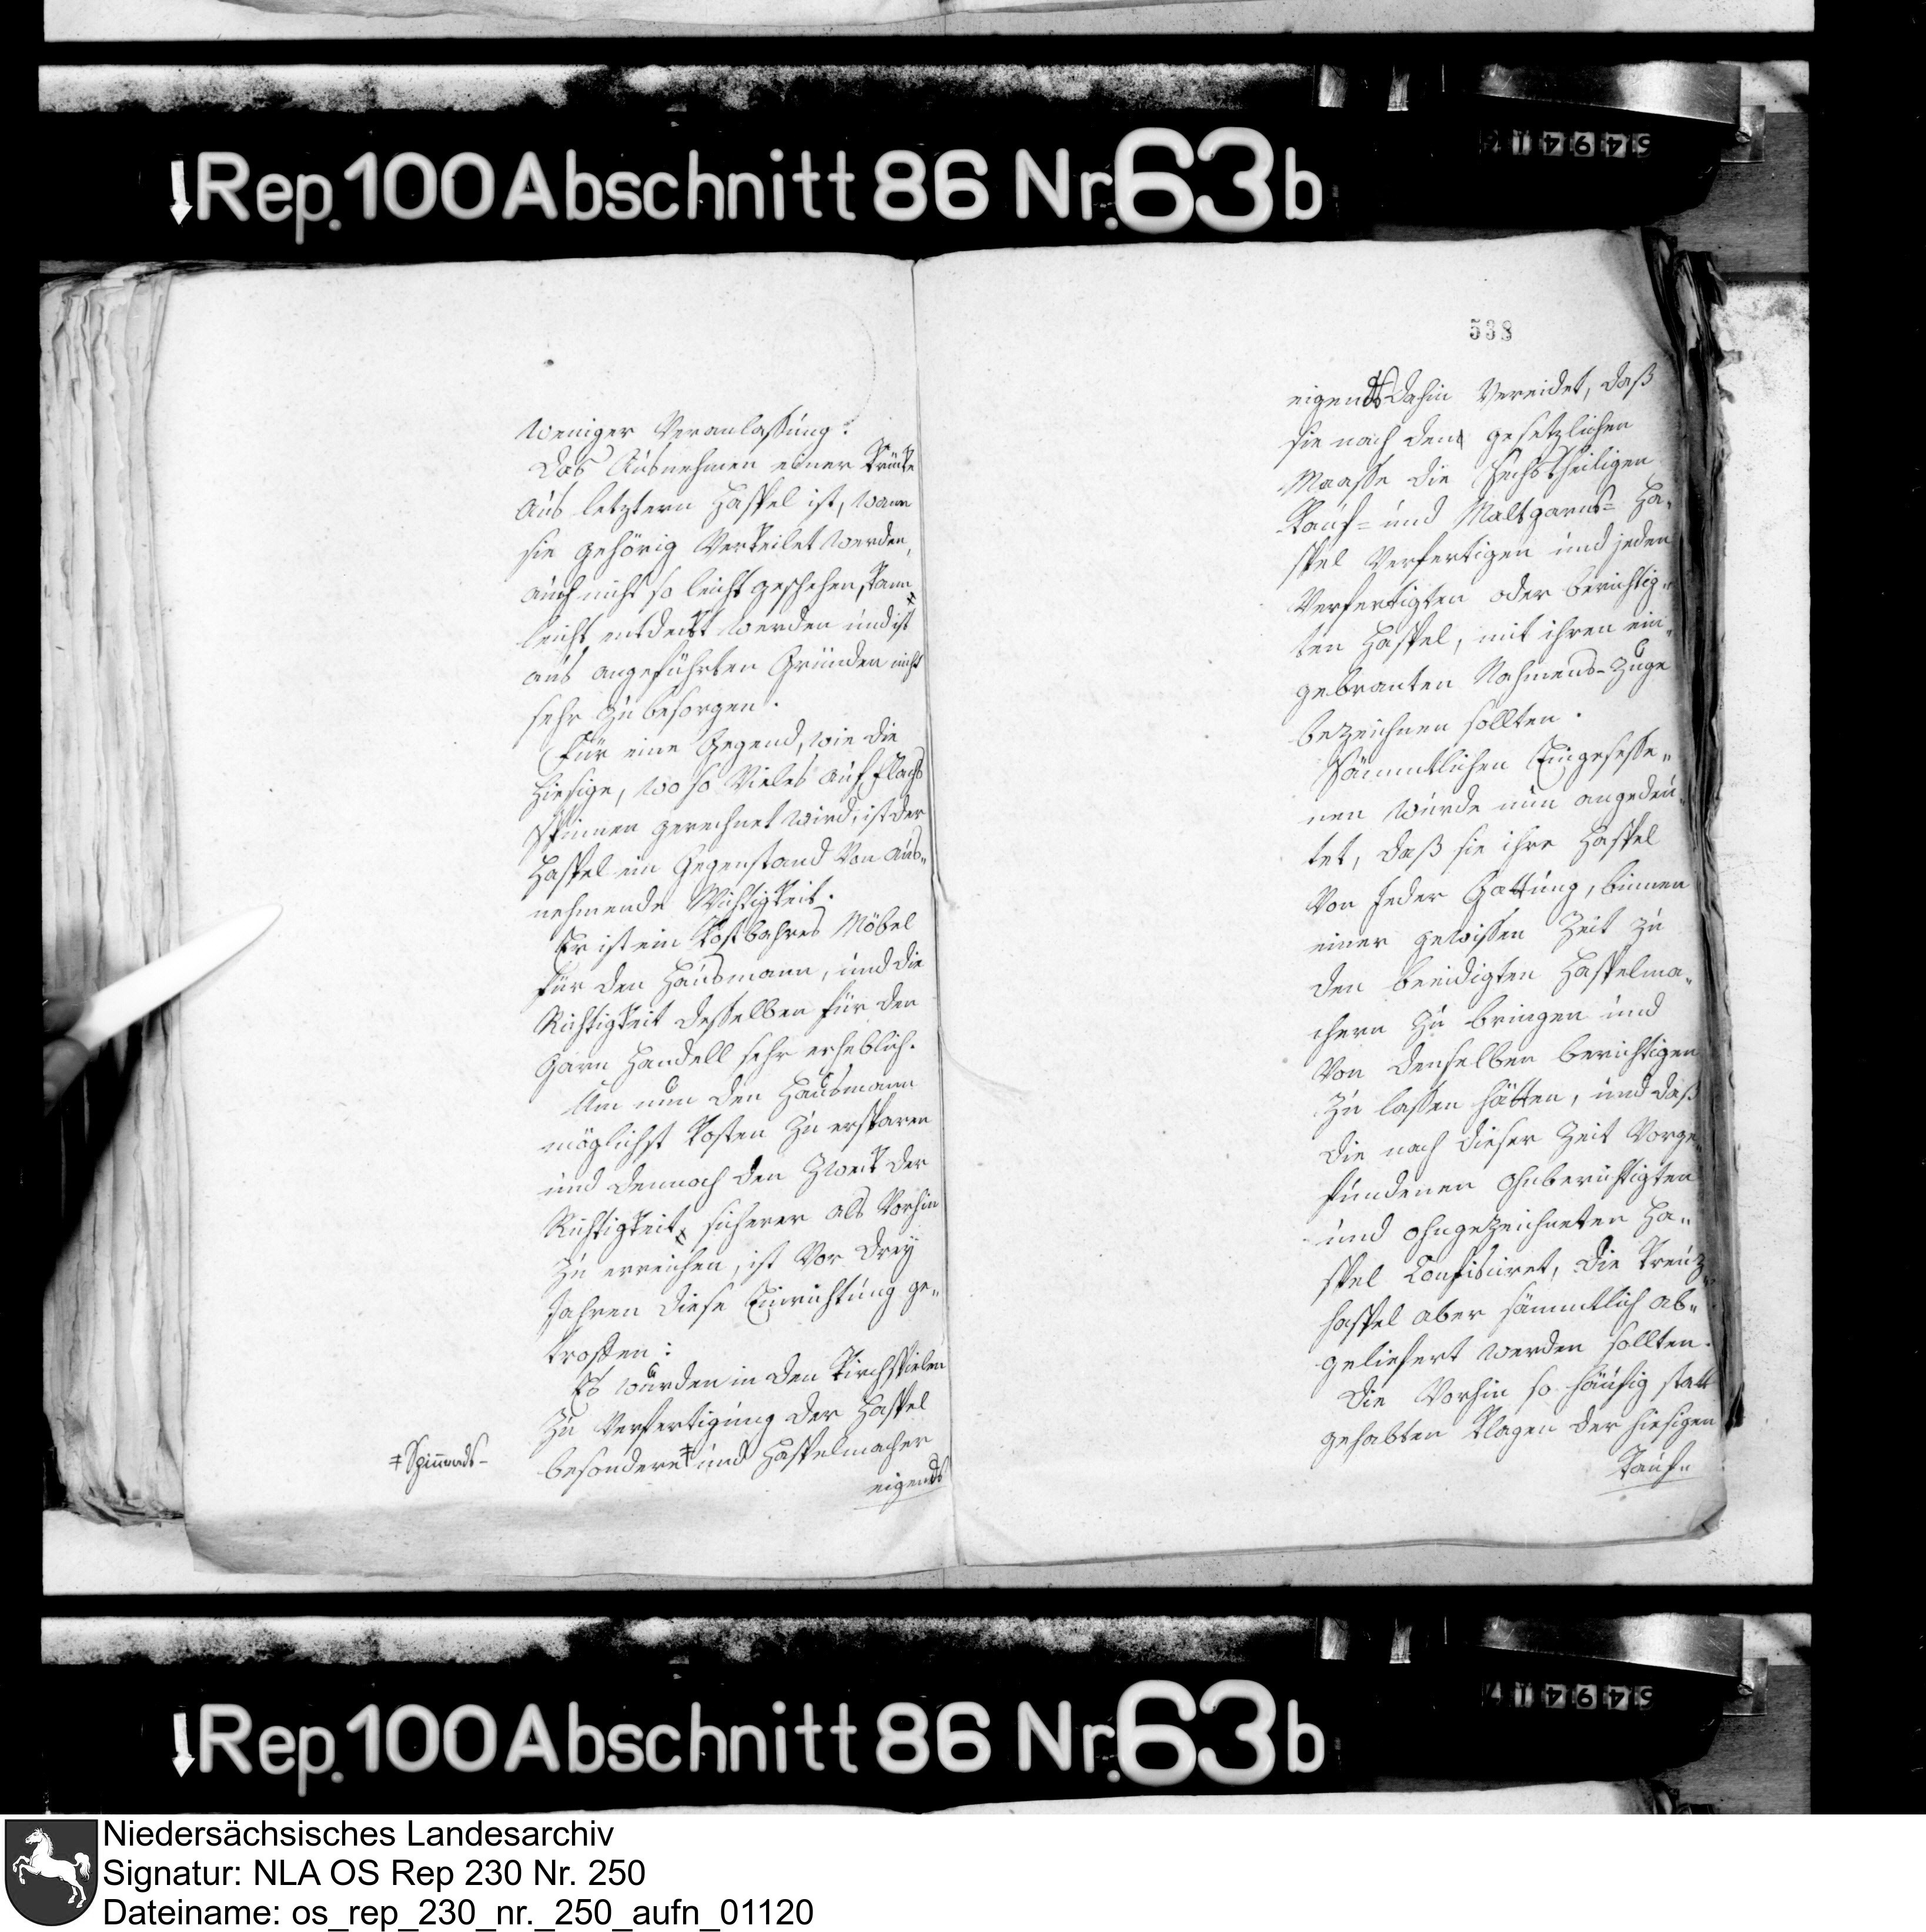 ↓Rep.100 Abschnitt 86 Nr. 63b
weniger Veranlassung.
Das Ausnehmen einer Krücke
aus letztern Haspel ist, wann
sie gehörig verkeilet werden,
auch nicht so leicht geschehen, kann
leicht entdeckt werden und ist
aus angeführten Gründen nicht
sehr zu besorgen.
Für eine Gegend, wie die
hiesige, wo so Vieles auf Flachs
Spinnen gerechnet wird, ist der
Haspel ein Gegenstand von aus-
nehmende Wichtigkeit.
Er ist ein kostbahres Möbel
für den Hausmann, und die
Richtigkeit desselben für den
Garn Handell sehr erheblich.
Um nun den Hausmann
möglichst Kosten zu ersparen
und dennoch den Zweck der
Richtigkeit sicherer als vorhin
zu erreichen, ist vor drey
Jahren diese Einrichtung ge-
troffen:
Es wurden in den Kirchspielen
zu Verfertigung der Haspel
besondere ‡ und Haspelmacher
‡
eigends
538
eigends dahin vereidet, daß
sie nach dem gesetzlichen
Maasse die Sechstheiligen
Kauf- und Moltgarns- Ha-
spel verfertigen und jeden
verfertigten oder berichtig-
ten Haspel, mit ihren ein-
gebranten Nahmens-Zuge
bezeichnen sollten.
Sämmtlichen Eingesesse-
nen wurde nun angedeu-
tet, daß sie ihre Haspel
von jeder Gattung, binnen
einer gewissen Zeit zu
den beeidigten Haspelma-
chern zu bringen und
von denselben berichtigen
zu lassen hätten, und daß
die nach dieser Zeit vorge-
fundenen ohnberichtigten
und ohngezeichneten Ha-
spel confisciret, die Kreuz-
haspel aber sämmtlich ab-
geliefert werden sollten.
Die vorhin so häufig statt
gehabten Klagen der hiesigen
Kauf-
↓Rep.100 Abschnitt 86 Nr. 63b
Niedersächsisches Landesarchiv
Signatur: NLA OS Rep 230 Nr. 250
Dateiname: os_rep_230_nr._250_aufn_01120